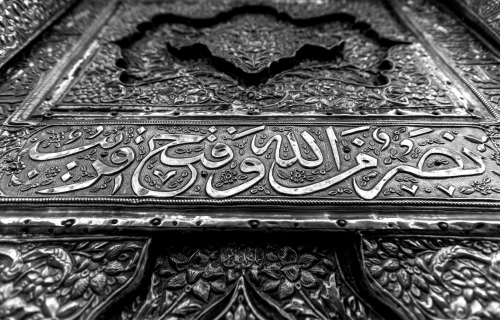 نَصْرٌ مِنَ اللهِ وَفَتْحٌ قَرِيبٌ